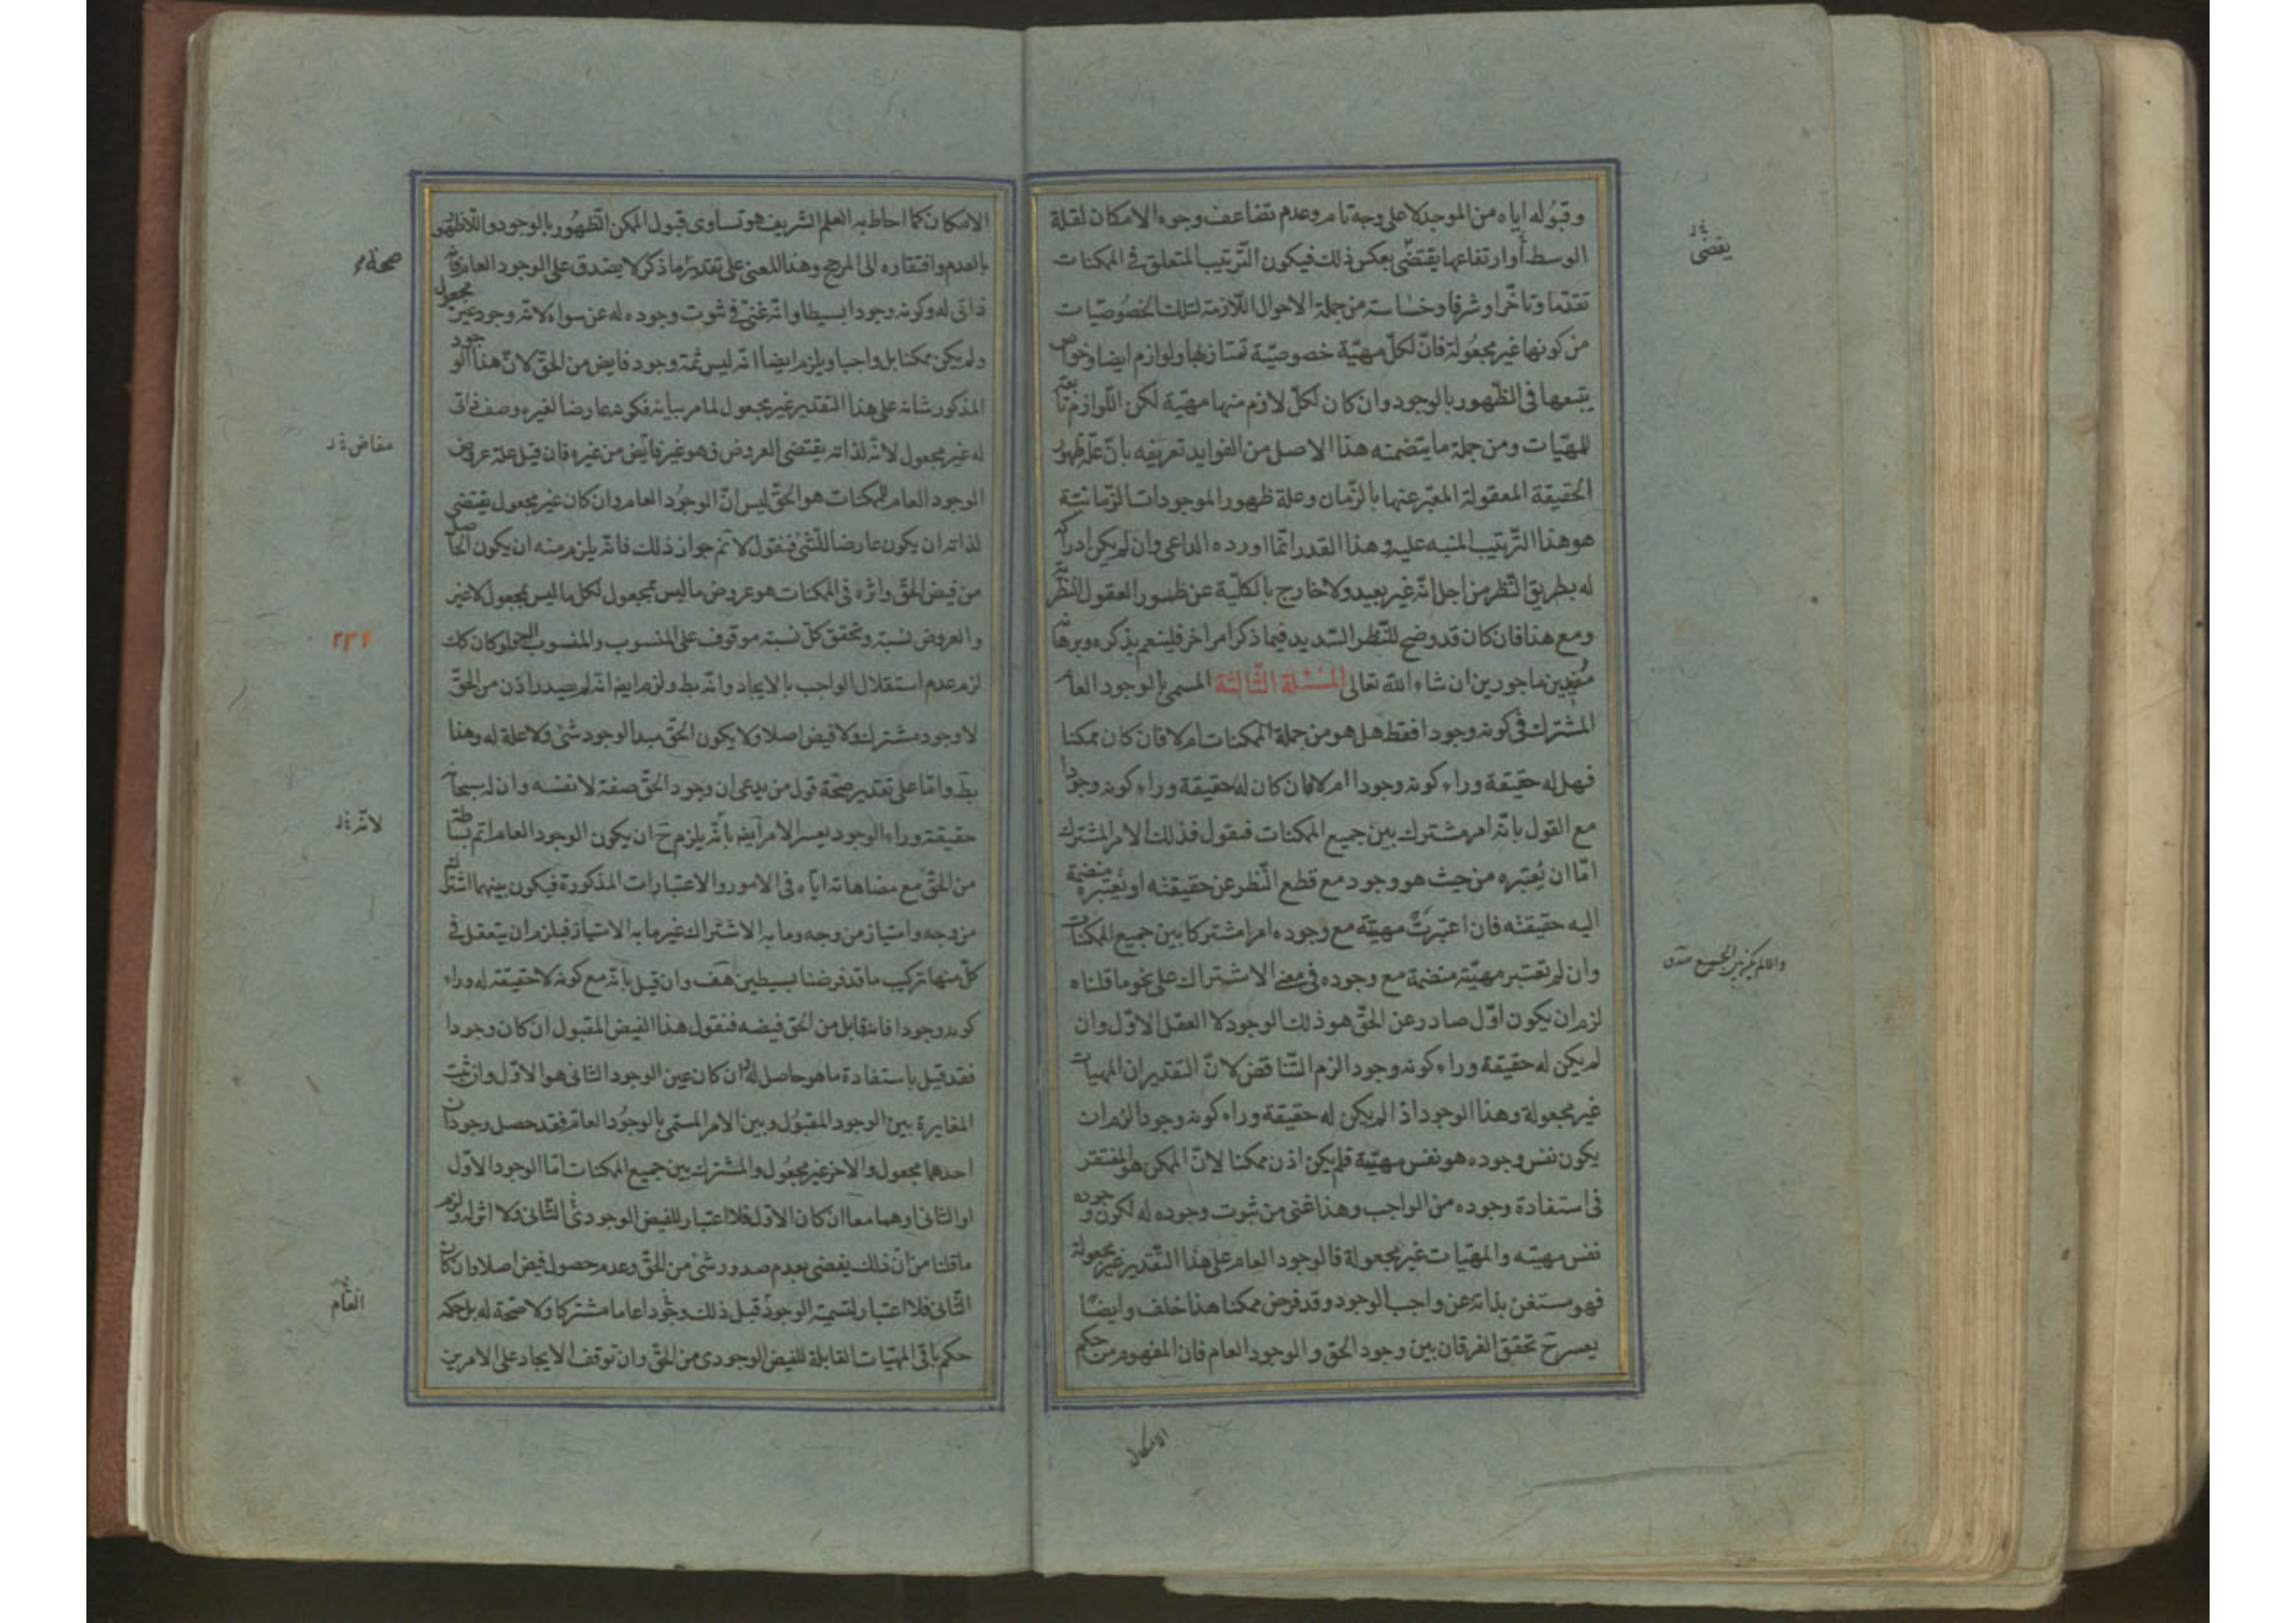 وقبوله اياه من الموجد لا على وجه تام وعدم تضاعف وجوه الامكان لقلة
الوسط أوارتفاعها يقتضى بعكس ذلك فيكون الترتيب المتعلق فى الممكنات
تقدما وتاخرا وشرفا وخساسة من جملة الاحوال اللازمة لتلك الخصوصيات
من كونها غير مجعولة فان لكل مهية خصوصية تمتاز بها ولوازم ايضا وخواص
يتبعها فى الظهور بالوجود وان كان لكل لازم منها مهية لكن اللوازم تابعة
للمهيات ومن جملة ما يتضمنه هذا الاصل من الفوايد تعريفه بان علة ظهور
الحقيقة المعقولة المعبر عنها بالزمان وعلة ظهور الموجودات الزمانية
هو هذا الترتيب المنبه عليه وهذا القدر انما اورده الداعى وان لم يكن ادراكه
له بطريق النظر من اجل انه غير بعيد ولا خارج بالكلية عن طور العقول النظرية
ومع هذا فان كان قد وضح للنظر السديد فيما ذكر امر اخر فلينعم بذكره وبرهانه
مفيدين ماجورين ان شاء الله تعالى المسئلة الثالثة المسمى بالوجود العام
المشترك فى كونه وجودا فقط هل هو من جملة الممكنات ام لا فان كان ممكنا
فهل له حقيقة وراء كونه وجودا ام لا فان كان له حقيقة وراء كونه وجودا
مع القول بانه امر مشترك بين جميع الممكنات فنقول فذلك الامر المشترك
اما ان يعتبره من حيث هو وجود مع قطع النظر عن حقيقته او يعتبره منضمة
اليه حقيقته فان اعتبرت مهيته مع وجوده امرا مشتركا بين جميع الممكنات
وان لم تعتبر مهيته منضمة مع وجوده فى معنى الاشتراك على نحو ما قلناه
لزم ان يكون اول صادر عن الحق هو ذلك الوجود لا العقل الاول وان
لم يكن له حقيقة وراء كونه وجودا لزم التناقض لان التقدير ان المهيات
غير مجعولة وهذا الوجود اذا لم يكن له حقيقة وراء كونه وجودا لزم ان
يكون نفس وجوده هو نفس مهيته فلم يكن اذن ممكنا لان الممكن هو المفتقر
فى استفادة وجوده من الواجب وهذا غنى من ثبوت وجوده له لكون وجوده
نفس مهيته والمهيات غير مجعولة فالوجود العام على هذا التقدير غير مجعولة
فهو مستغن بذاته عن واجب الوجود وقد فرض ممكنا هذا خلف وايضا
يعسر ح تحقق الفرقان بين وجود الحق والوجود العام فان المفهوم من حكم
يقضى
الامكان
الامكان كما احاط به العلم الشريف هو تساوى قبول الممكن الظهور بالوجود واللاظهور
بالعدم وافتقاره الى المرجح وهذا المعنى على تقدير ما ذكر لا يصدق على الوجود العام فانه
ذاتى له وكونه وجودا بسيطا وانه غنى فى ثبوت وجوده له عن سواه لانه وجود غير مجعول
ولم يكن ممكنا بل واجبا ويلزم ايضا انه ليس ثمة وجود فايض من الحق لان هذا الوجود
المذكور شانه على هذا التقدير غير مجعول لما مر بيانه فكونه عارضا لغيره وصف ذاتى
له غير مجعول لانه لذاته يقتضى العروض فهو غير فايض من غيره فان قيل علة عروض
الوجود العام للممكنات هو الحق ليس ان الوجود العام وان كان غير مجعول يقتضى
لذاته ان يكون عارضا للشى فنقول لا نم جواز ذلك فانه يلزم منه ان يكون الحاصل
من فيض الحق واثره فى الممكنات هو عروض ما ليس بمجعول لكل ما ليس بمجعول لا غير
والعروض نسبة وتحقق كل نسبة موقوف على المنسوب والمنسوب اليه ولو كان كك
لزم عدم استقلال الواجب بالايجاد وانه بط ولزم ايض انه لم يصدر اذن من الحق
لا وجود مشترك ولا فيض اصلا ولا يكون الحق مبدا لوجود شئ ولا علة له وهذا
بط واما على تقدير صحة قول من يدعى ان وجود الحق صفة لا نفسه وان له سبحانه
حقيقة وراء الوجود يعسر الامر ايض بانه يلزم ح ان يكون الوجود العام اتم بساطة
من الحق مع مضاهاته اياه فى الامور والاعتبارات المذكورة فيكون بينهما اشتراك
من وجه وامتياز من وجه وما به الاشتراك غير ما به الامتياز فيلزم ان يتعقل فى
كل منهما تركيب ما قد فرضنا بسيطين هف وان قيل بانه مع كونه لا حقيقة له وراء
كونه وجودا فانه قابل من الحق فيضه فنقول هذا الفيض المقبول ان كان وجودا
فقد قيل باستفادة ما هو حاصل له ان كان عين الوجود الثانى هو الاول وان ثبت
المغايرة بين الوجود المقبول وبين الامر المسمى بالوجود العام فقد حصل وجودان
احدهما مجعول والاخر غير مجعول والمشترك بين جميع الممكنات اما الوجود الاول
او الثانى او هما معا ان كان الاول فلا اعتبار للفيض الوجودى الثانى ولا اثر له ولزم
ما قلنا من ان ذلك يفضى بعدم صدور شئ من الحق وعدم حصول فيض اصلا وان كان
الثانى فلا اعتبار لتسمية الوجود قبل ذلك وجودا عاما مشتركا ولا صحة له بل حكمه
حكم باقى المهيات القابلة للفيض الوجودى من الحق وان توقف الايجاد على الامرين
صحة
مفاض
٢٣٤
لانه
العام